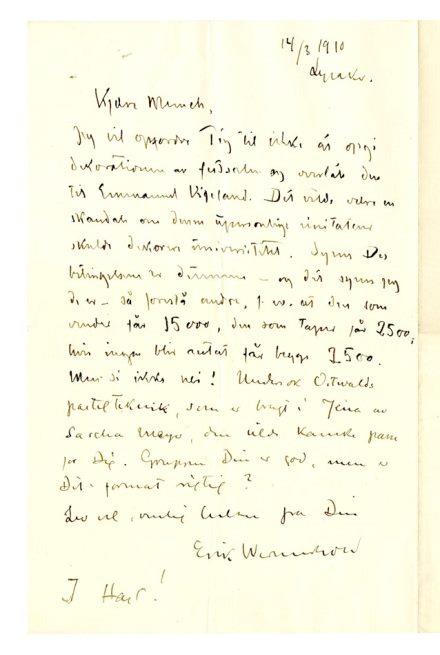 14/3 1910
Lysaker.
Kjære Munch,
Jeg vil opfordre Dig til ikke at opgi
dekorationen av festsalen og overlate den
til Emmanuel Vigeland. Det vilde være en
skandale om denne upersonlige imitator
skulde dekorere universitetet. Synes Du
betingelserne er dumme – og det synes jeg
de er – så foreslå andre, f. ex. at den som
vinder får 15000, den som taper får 2500,
hvis ingen blir antat får begge 7500.
Men si ikke nei! Undersøk Ostwalds
pastelteknik, som er brugt i Jena av
Sascha , den vilde kanske passe
for Dig. Gruppen Din er god, men er
Dit format rigtig?
Lev vel, venlig hilsen fra Din
Erik Werenskiold
I Hast!